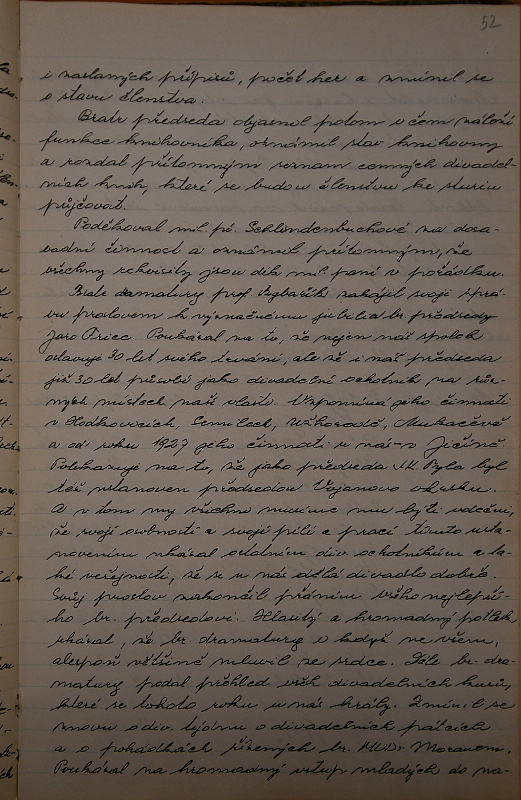 52
i zaslaných přípisů, počet her a zmínil se
o stavu členstva.
Bratr předseda objasnil potom v čem záleží
funkce knihovníka, oznámil stav knihovny
a rozdal přítomným seznam cenných divadel-
ních knih, které se budou členstvu ke studiu
půjčovat.
Poděkoval mil. pí. Schlundenbuchové za dosa-
vadní činnost a oznámil přítomným, že
všechny rekvisity jsou dík mil. paní v pořádku.
Bratr dramaturg prof. Rybařík zahájil svoji zprá-
vu proslovem k významnému jubileu br. předsedy
Jaro Price. Poukázal na to, že nejen náš spolek
oslavuje 30 let svého trvání, ale že i náš předseda
již 30 let působí jako divadelní ochotník na růz-
ných místech naší vlasti. Vzpomíná jeho činnosti
v Hodkovicích, Semilech, Užhorodě, Mukačevě
a od roku 1927 jeho činnosti u nás - v Jičíně
Poukazuje na to, že jako předseda byl
též ustanoven předsedou Vojanova okrsku.
A v tom my všichni musíme mu býti vděčni,
že svojí osobností a svojí pílí a prací tímto usta-
novením ukázal ostatním div. ochotníkům a ta-
ké veřejnosti, že se u nás dělá divadlo dobře.
Svůj proslov zakončil přáním všeho nejlepší-
ho br. předsedovi. Hlasitý a hromadný potlesk
ukázal, že br. dramaturg i když ne všem,
alespoň většině mluvil ze srdce. Dále br. dra-
maturg podal přehled všech divadelních kusů,
které se tohoto roku u nás hrály. Zmínil se
znovu o div. týdnu o divadelních pátcích
a o pohádkách řízených br. MUDr Moravcem.
Poukázal na hromadný vstup mladých do na-